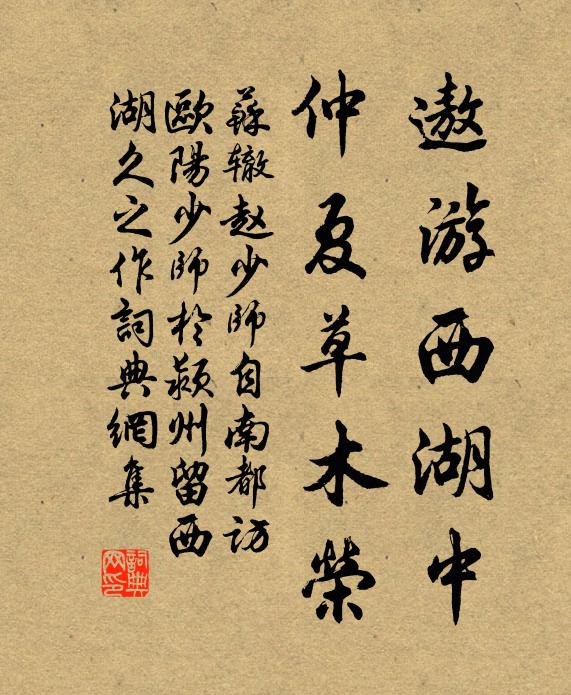 遨游西湖中
仲夏草木榮
蘇辙赵少师自南都访
歐陽少师於颍州留西
湖久之作詞典網集
詞典网印